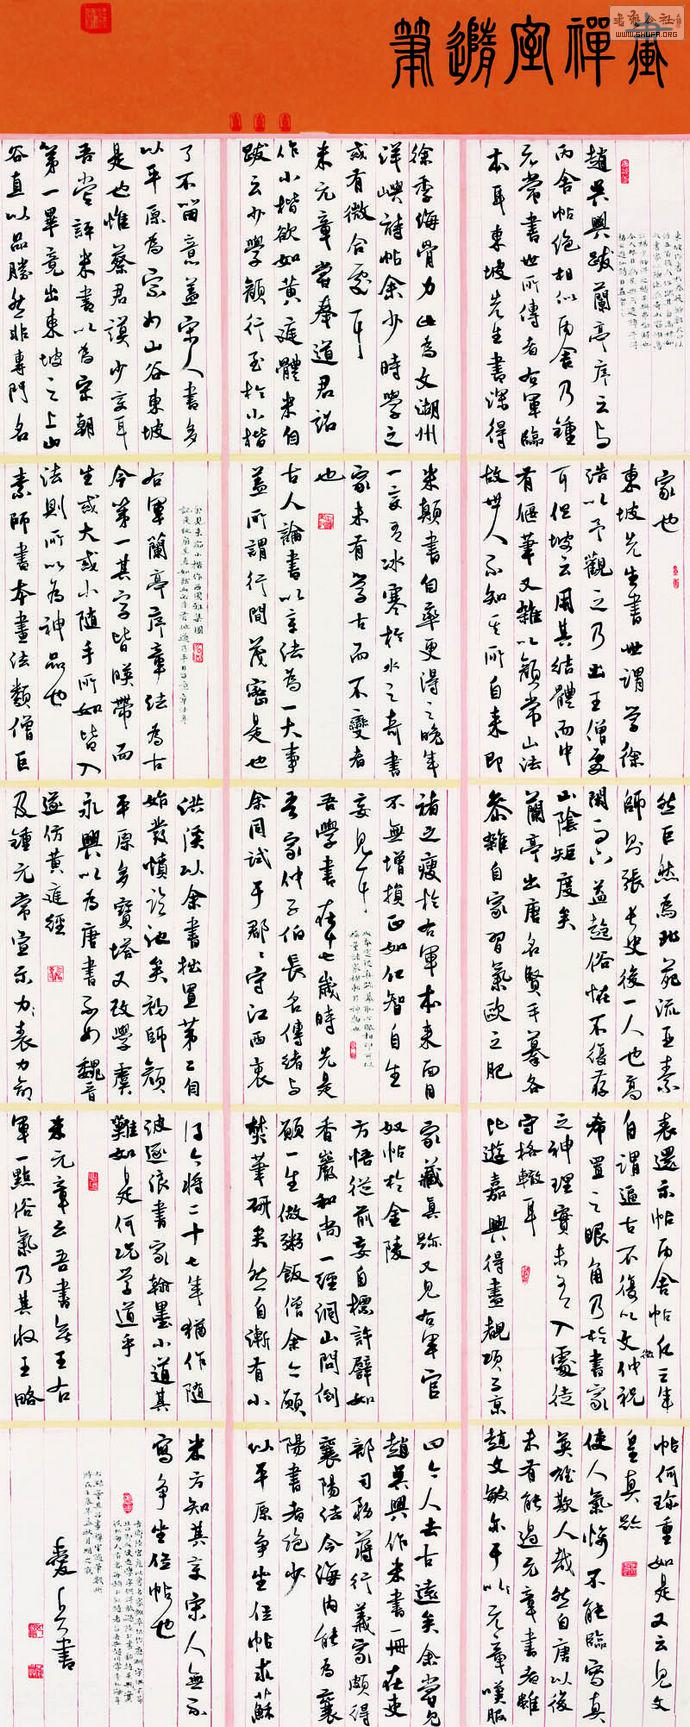 畫禪室隨筆
趙吳興跋蘭亭序云與
丙舍帖絕相似丙舍乃鍾
元常書世所傳者右軍臨
本耳東坡先生書深得
徐季海骨力此為文湖州
洋嶼詩帖余少時學之
或有微合處耳
米元章嘗奉道君詔
作小楷欲如黃庭體米自
跋云少學顏行至於小楷
了不留意蓋宋人書多
以平原為宗如山谷東坡
是也惟蔡君謨少變耳
吾嘗評米書以為宋朝
第一畢竟出東坡之上山
谷直以品勝然非專門名
家也
東坡先生書世謂學徐
浩以予觀之乃出王僧虔
耳但坡云用其結體而中
有偃筆又雜以顏常山法
故世人不知其所自來即
米顛書自率更得之晚年
一變有冰寒於水之奇書
家未有學古而不變者
也
古人論書以章法為一大事
蓋所謂行間茂密是也
余見米癡小楷作西園雅集圖
右軍蘭亭序章法為古
今第一其字皆暎帶而
生或大或小隨手所如皆入
法則所以為神品也
素師書本畫法類僧巨
然巨然為北苑流亞素
師則張長史後一人也高
閑而下益趨俗怪不復存
山陰矩度矣
蘭亭出唐名賢手摹各
參雜自家習氣歐之肥
褚之瘦於右軍本來面目
不無增損正如仁智自生
妄見耳
吾學書在十七歲時先是
吾家仲子伯長名傳緒與
余同試于郡郡守江西衷
洪溪以余書拙置第二自
始發憤臨池矣初師顏
平原多寶塔又改學虞
永興以為唐書不如魏晉
遂仿黃庭經
及鍾元常宣示力表力命
表還示帖丙舍帖凡三年
自謂逼古不復以文徵仲祝
希置之眼角乃於書家
之神理實未有入處徒
守格轍耳
比遊嘉興得盡覩項子京
家藏真跡又見右軍官
奴帖於金陵
方悟從前妄自標許譬如
香嚴和尚一經洞山問倒
願一生做粥飯僧余亦願
焚筆研矣然自漸有小
得今將二十七年猶作隨
波逐浪書家翰墨小道其
難如是何況學道乎
米元章云吾書無王右
軍一點俗氣乃其收王略
帖何珍重如是又云見文
皇真跡
使人氣懾不能臨寫真
英雄欺人哉然自唐以後
未有能過元章書者雖
趙文敏亦于以元章嘆服
四今人去古遠矣余嘗見
趙吳興作米書一冊在吏
部司務蔣行義家頗得
襄陽法今海內能為襄
陽書者絕少
以平原爭坐位帖求蘇
米方知其變宋人無不
寫爭坐位帖也
WWW.SHUFA.ORG